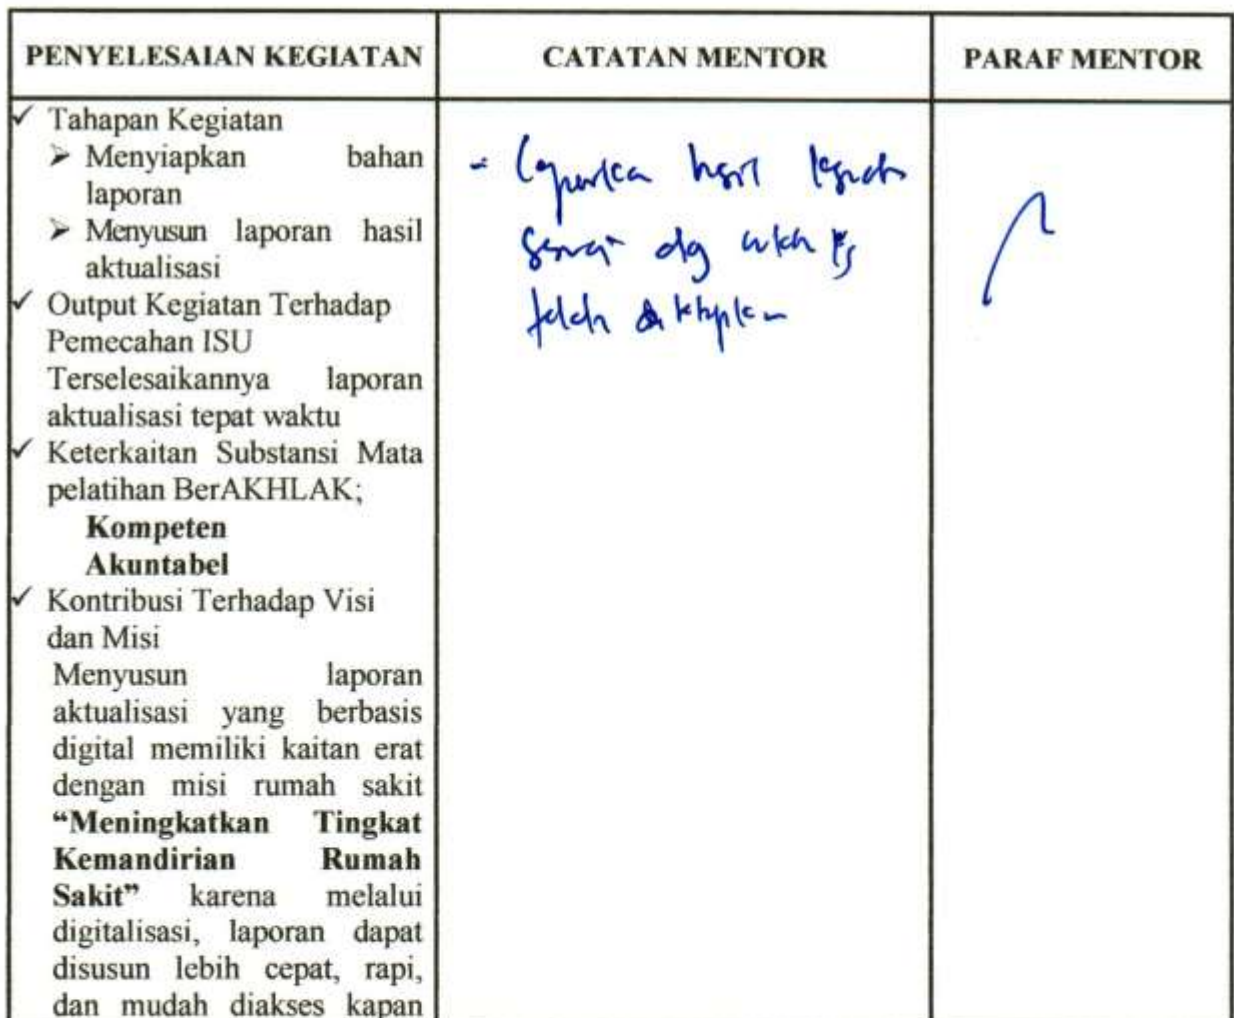 PENYELESAIAN KEGIATAN
CATATAN MENTOR
PARAF MENTOR
✓ Tahapan Kegiatan
➤ Menyiapkan bahan
laporan
➤ Menyusun laporan hasil
aktualisasi
✓ Output Kegiatan Terhadap
Pemecahan ISU
Terselesaikannya laporan
aktualisasi tepat waktu
✓ Keterkaitan Substansi Mata
pelatihan BerAKHLAK;
Kompeten
Akuntabel
✓ Kontribusi Terhadap Visi
dan Misi
Menyusun laporan
aktualisasi yang berbasis
digital memiliki kaitan erat
dengan misi rumah sakit
“Meningkatkan Tingkat
Kemandirian Rumah
Sakit” karena melalui
digitalisasi, laporan dapat
disusun lebih cepat, rapi,
dan mudah diakses kapan
- Laporkan hasil kegiatan
sesuai dg yg
telah ditetapkan